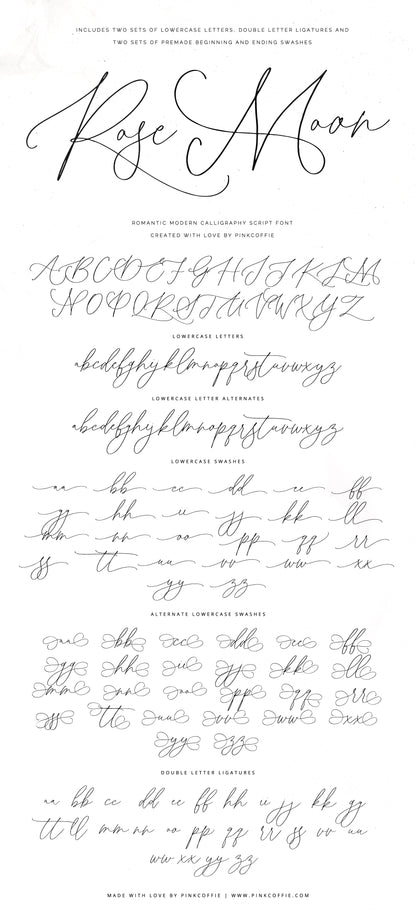 INCLUDES TWO SETS OF LOWERCASE LETTERS, DOUBLE LETTER LIGATURES AND
TWO SETS OF PREMADE BEGINNING AND ENDING SWASHES
Rose Moon
ROMANTIC MODERN CALLIGRAPHY SCRIPT FONT
CREATED WITH LOVE BY PINKCOFFIE
ABCDEFGHIJKLM
NOPQRSTUVWXYZ
LOWERCASE LETTERS
abcdefghyklmnopqrstuvwxyz
LOWERCASE LETTER ALTERNATES
abcdefghyklmnopqrstuvwxyz
LOWERCASE SWASHES
aa bb cc dd ee ff
gg hh ii jj kk ll
mm nn oo pp qq rr
ss tt uu vv ww xx
yy zz
ALTERNATE LOWERCASE SWASHES
aa bb cc dd ee ff
gg hh ii jj kk ll
mm nn oo pp qq rr
ss tt uu vv ww xx
yy zz
DOUBLE LETTER LIGATURES
aa bb cc dd ee ff hh ii jj kk gg
tt ll mm nn oo pp qq rr ss vv uu
ww xx yy zz
MADE WITH LOVE BY PINKCOFFIE | WWW.PINKCOFFIE.COM